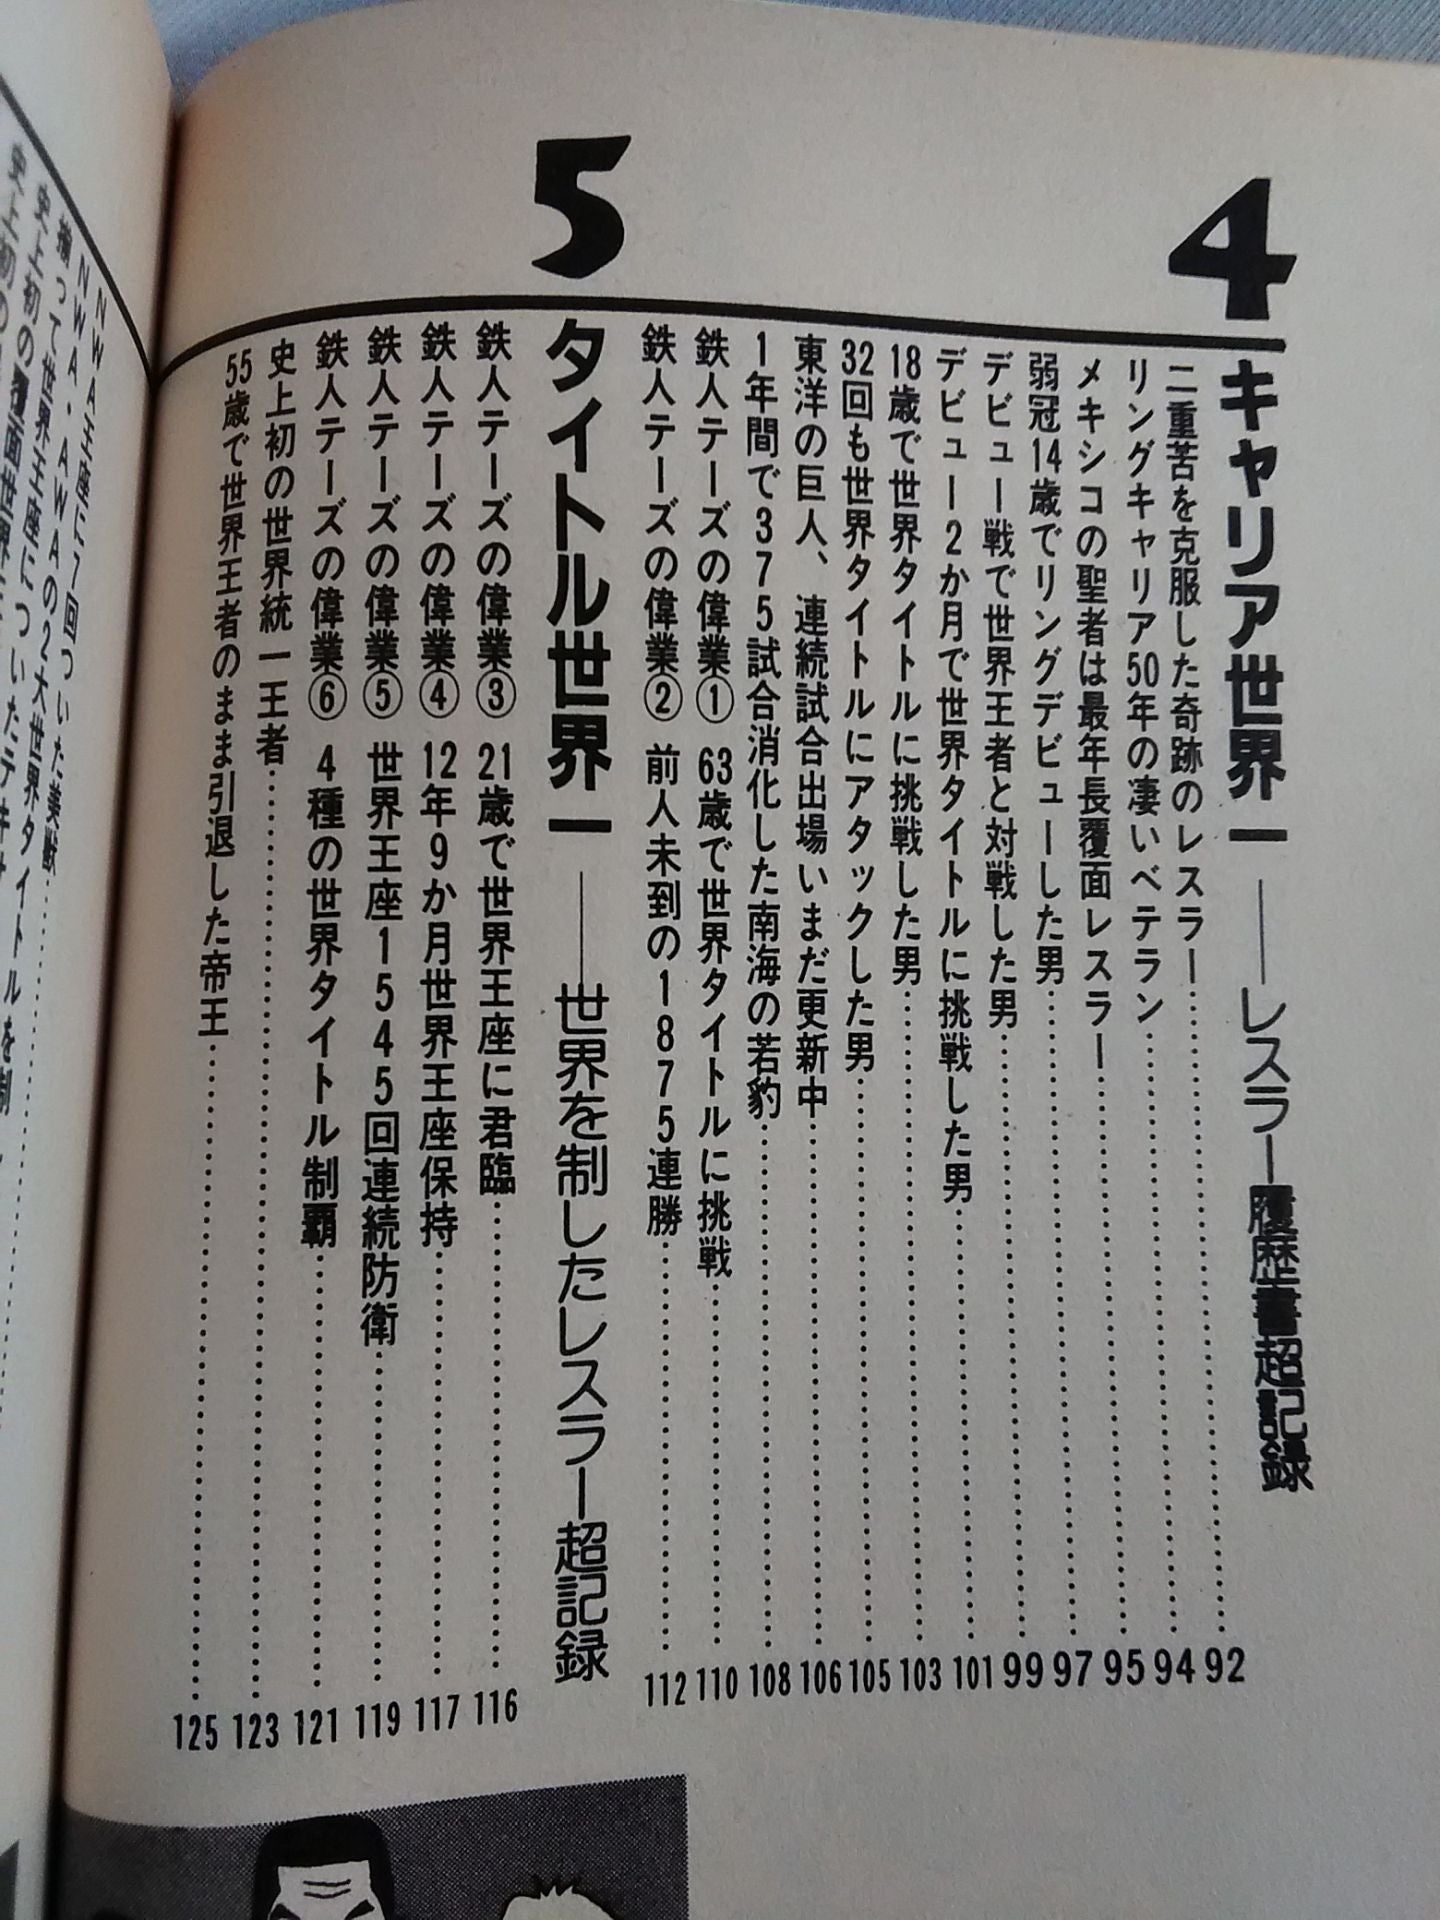 4
キャリア世界一——レスラー履歴書超記録
二重苦を克服した奇跡のレスラー 92
リングキャリア50年の凄いベテラン 94
メキシコの聖者は最年長覆面レスラー 95
弱冠14歳でリングデビューした男 97
デビュー戦で世界王者と対戦した男 99
デビュー2か月で世界タイトルに挑戦した男 101
18歳で世界タイトルに挑戦した男 103
32回も世界タイトルにアタックした男 105
東洋の巨人、連続試合出場いまだ更新中 106
1年間で375試合消化した南海の若豹 108
鉄人テーズの偉業① 63歳で世界タイトルに挑戦 110
鉄人テーズの偉業② 前人未到の1875連勝 112
5
タイトル世界一——世界を制したレスラー超記録
鉄人テーズの偉業③ 21歳で世界王座に君臨 116
鉄人テーズの偉業④ 12年9か月世界王座保持 117
鉄人テーズの偉業⑤ 世界王座1545回連続防衛 119
鉄人テーズの偉業⑥ 4種の世界タイトル制覇 121
史上初の世界統一王者 123
55歳で世界王者のまま引退した帝王 125
NWA王座に7回ついた美獣
NWA・AWAの2大世界タイトルを制
揃って世界王座についたテキサ
史上初の覆面世界王
史上初の